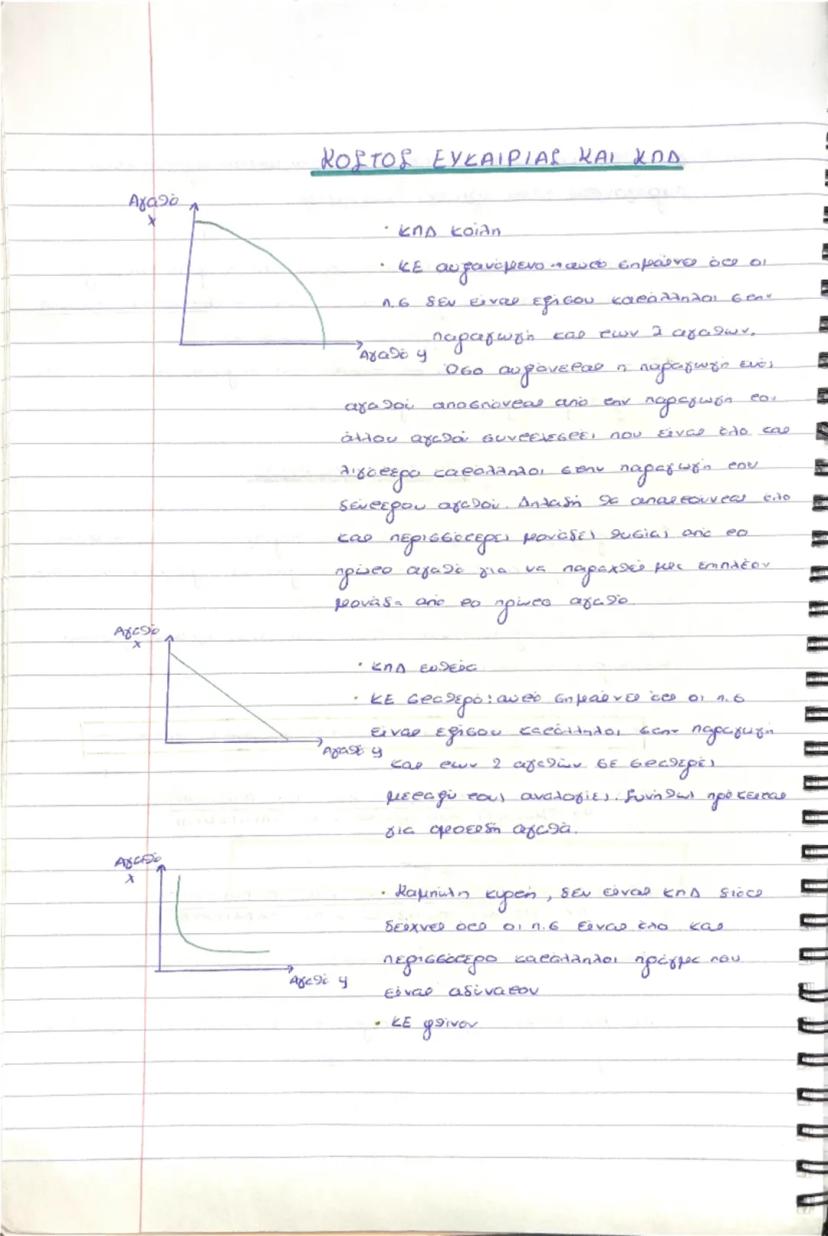 ΚΟΣΤΟΣ ΕΥΚΑΙΡΙΑΣ ΚΑΙ ΚΠΔ
Αγαθό
Χ
Αγαθό Υ
· ΚΠΔ κοίλη
· ΚΕ αυξανόμενο → αυτό σημαίνει ότι οι
π.σ δεν είναι εξίσου κατάλληλοι στην
παραγωγή και των 2 αγαθών.
Όσο αυξάνεται η παραγωγή ενός
αγαθού αποσπώνται από την παραγωγή του
άλλου αγαθού συντελεστές που είναι όλο και
λιγότερο κατάλληλοι στην παραγωγή του
δεύτερου αγαθού. Δηλαδή θα απαιτούνται όλο
και περισσότερες μονάδες θυσίας από το
πρώτο αγαθό για να παραχθεί μια επιπλέον
μονάδα από το πρώτο αγαθό.
Αγαθό
Χ
Αγαθό Υ
· ΚΠΔ ευθεία
· ΚΕ σταθερό: αυτό σημαίνει ότι οι π.σ
είναι εξίσου κατάλληλοι στην παραγωγή
και των 2 αγαθών σε σταθερές
μεταξύ τους αναλογίες. Συνήθως πρόκειται
για ομοειδή αγαθά.
Αγαθό
Χ
Αγαθό Υ
· Καμπύλη κυρτή, δεν είναι ΚΠΔ διότι
δείχνει ότι οι π.σ είναι όλο και
περισσότερο κατάλληλοι πράγμα που
είναι αδύνατον
· ΚΕ φθίνον